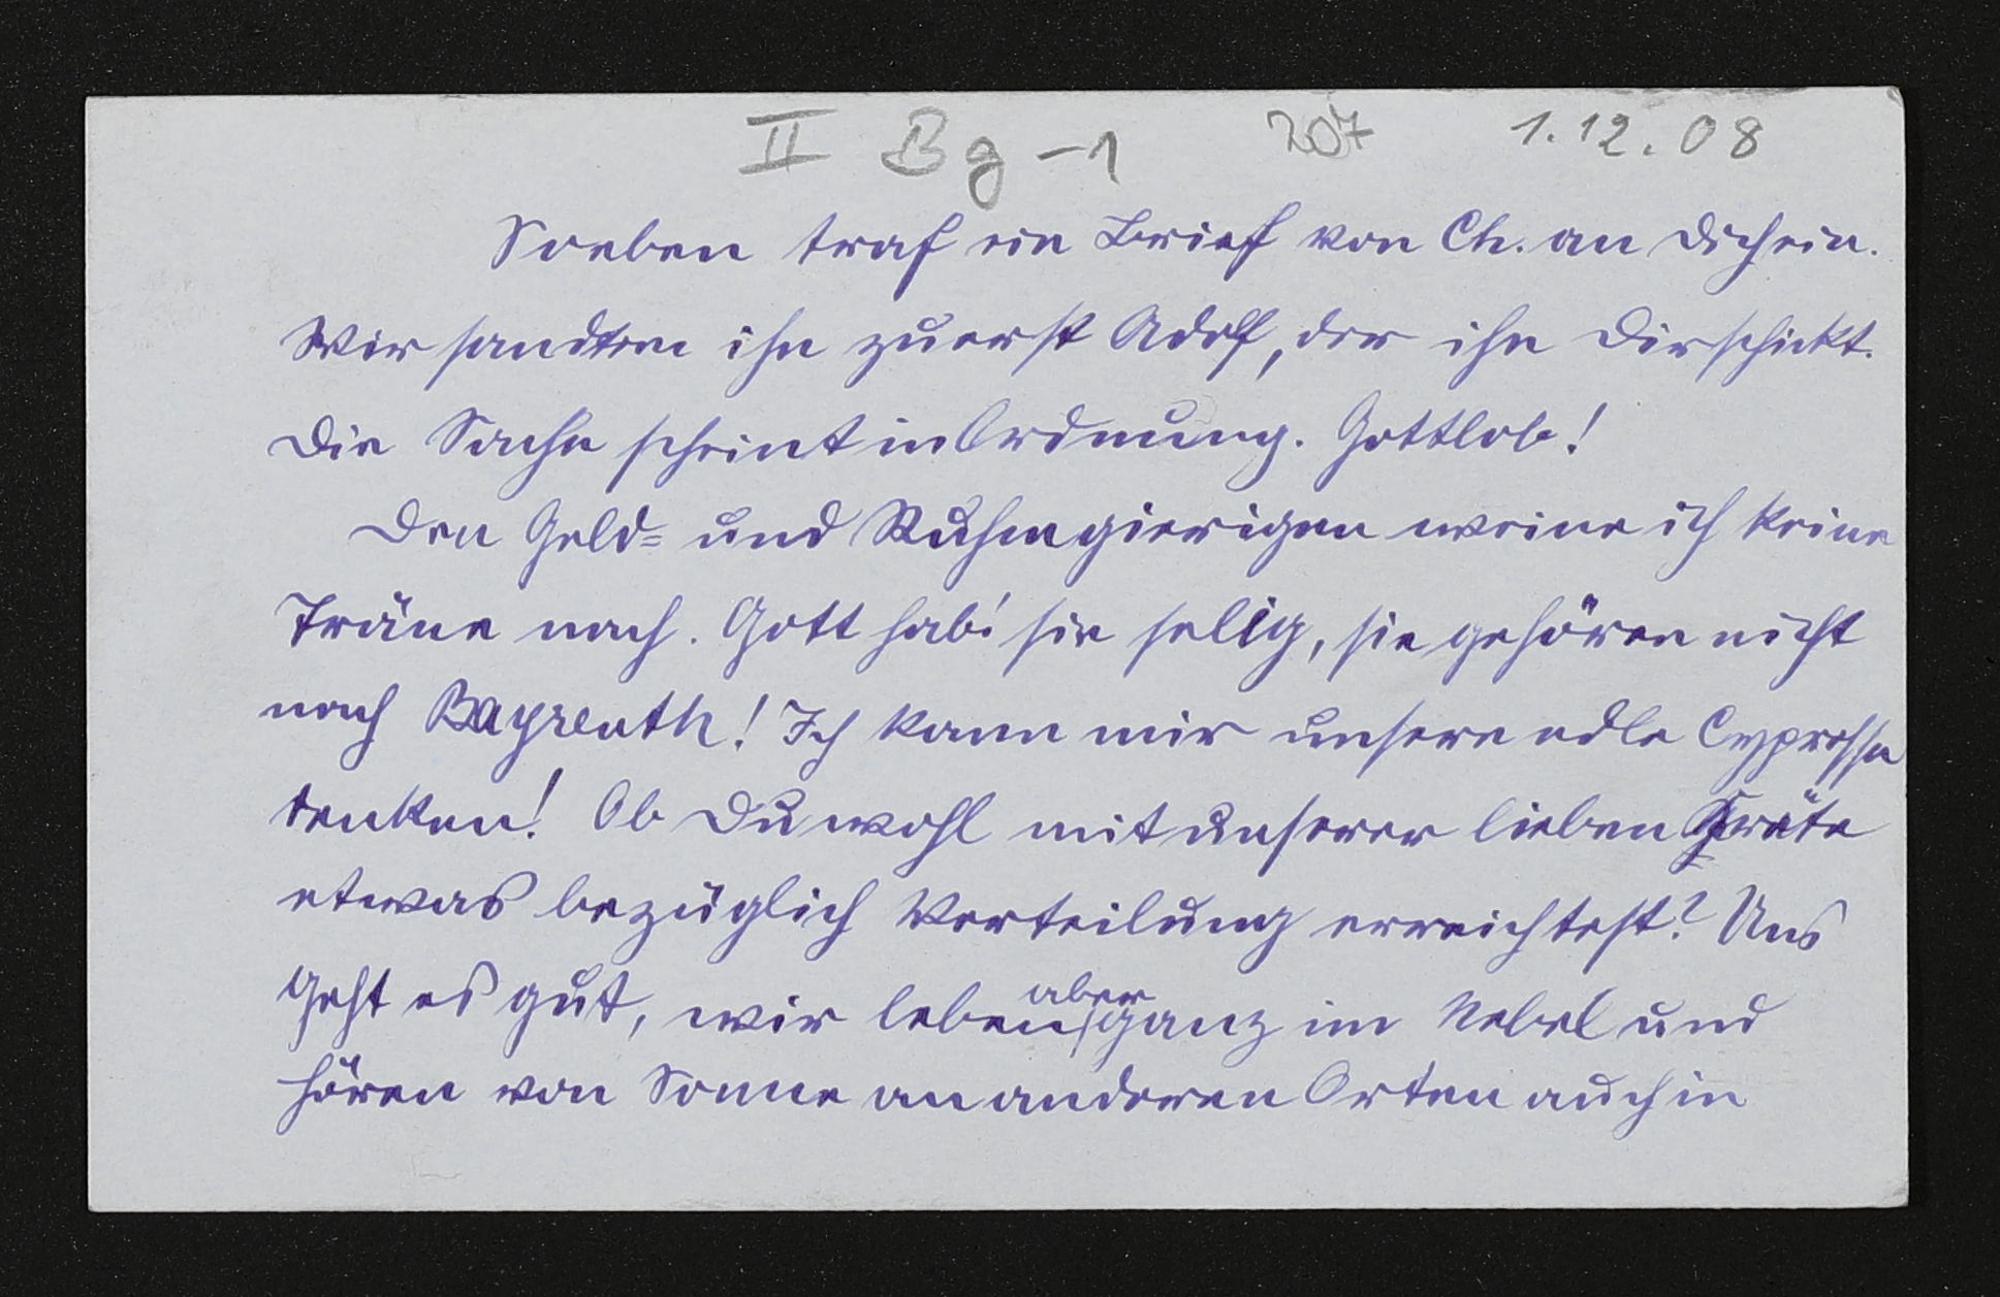 II Bg-1 207 1.12.08
Soeben traf ein Brief von Ch. an Dich ein.
Wir sandten ihn zuerst Adolf, der ihn Dir schickt.
Die Sache scheint in Ordnung. Gottlob!
Den Geld= und Ruhmgierigen weine ich keine
Träne nach. Gott hab' sie selig, sie gehören nicht
nach Bayreuth! Ich kann mir unsere edle Cypresse
denken! Ob Du wohl mit unserer lieben Gräte
etwas bezüglich Verteilung erreichtest? Uns
geht es gut, wir leben aber ganz im Nebel und
hören von Sonne an anderen Orten auch in